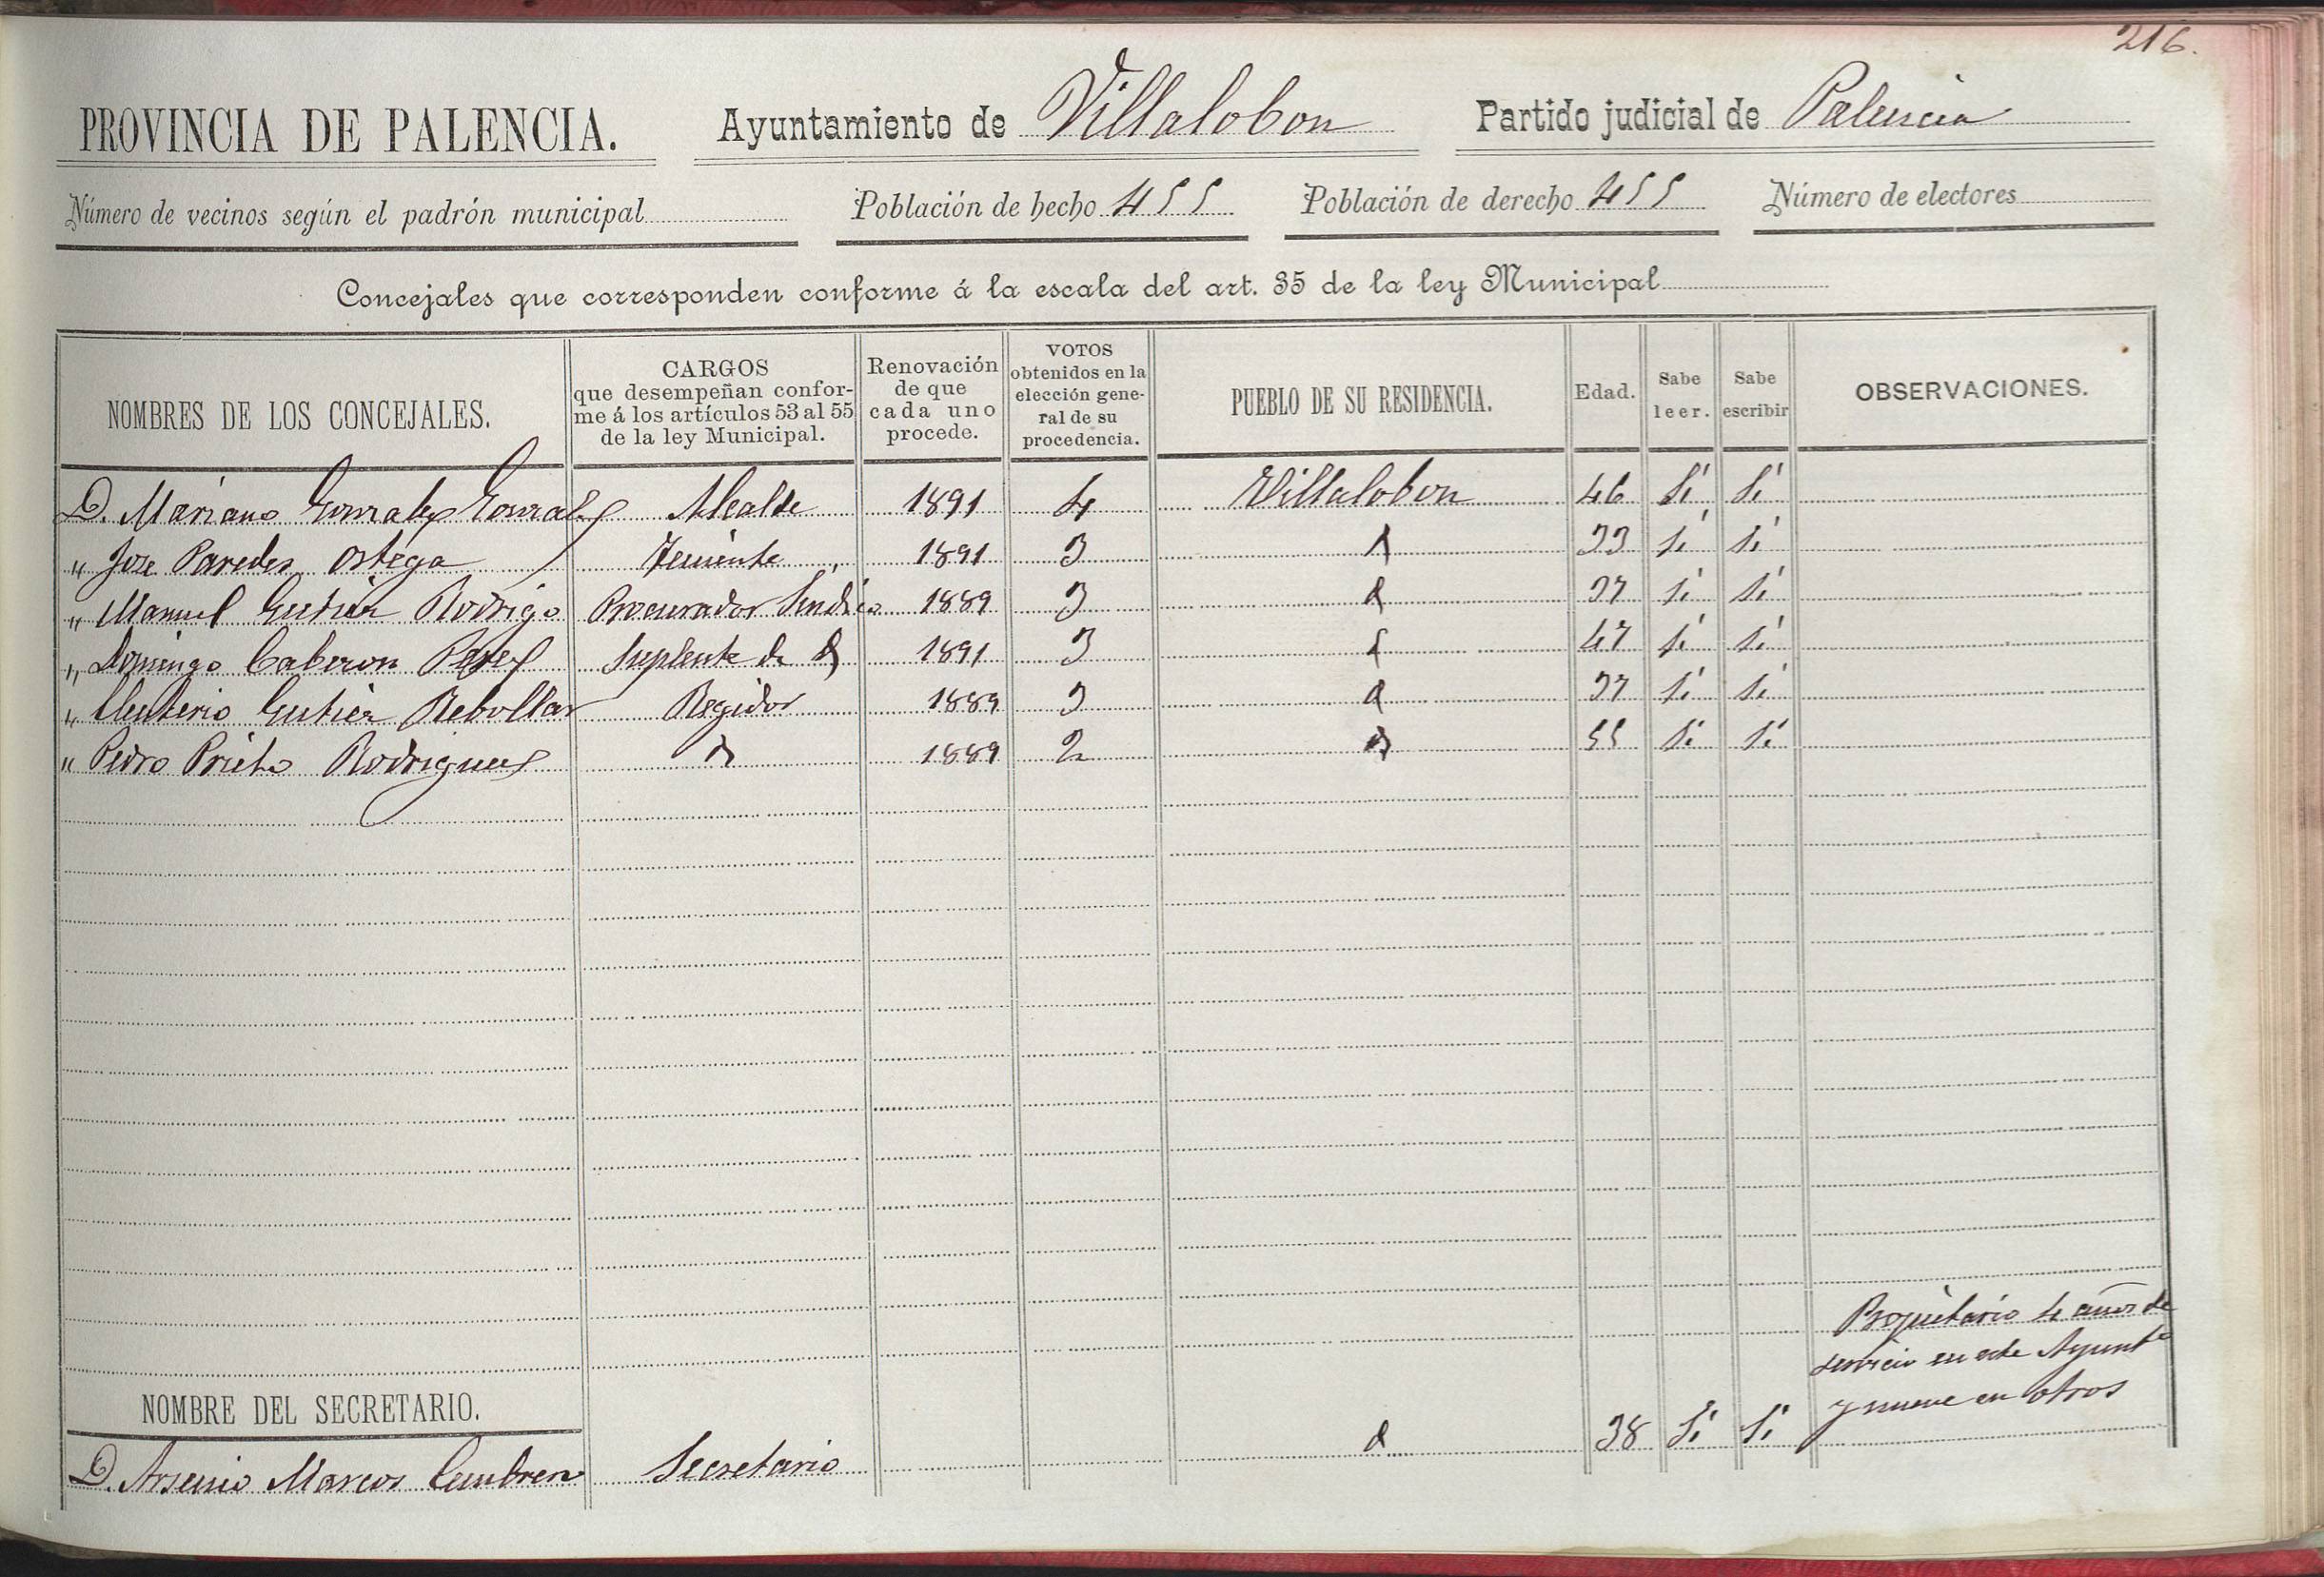 216.
PROVINCIA DE PALENCIA. Ayuntamiento de Villalobon Partido judicial de Palencia
Número de vecinos según el padrón municipal Población de hecho 455 Población de derecho 455 Número de electores
Concejales que corresponden conforme á la escala del art. 35 de la ley Municipal
NOMBRES DE LOS CONCEJALES.
CARGOS
que desempeñan confor-
me á los artículos 53 al 55
de la ley Municipal.
Renovación
de que
cada uno
procede.
VOTOS
obtenidos en la
elección gene-
ral de su
procedencia.
PUEBLO DE SU RESIDENCIA.
Edad.
Sabe
leer.
Sabe
escribir
OBSERVACIONES.
D. Mariano Gonzalez Gonzalez Alcalde 1891 4 Villalobon 46 Si Si
" Jose Paredes Ortega Teniente 1891 3 d 33 si si
" Manuel Gutier Rodrigo Procurador Sindico 1889 3 d 37 si si
" Domingo Caberon Perez Suplente de d 1891 3 d 47 si si
" Eleuterio Gutier Rebollar Regidor 1889 3 d 37 si si
" Pedro Prieto Rodriguez d 1889 2 d 55 si si
Propietario 4 años de
servicio en este Ayunto
y nueve en otros
NOMBRE DEL SECRETARIO.
D. Arsenio Marcos Secretario d 38 Si Si